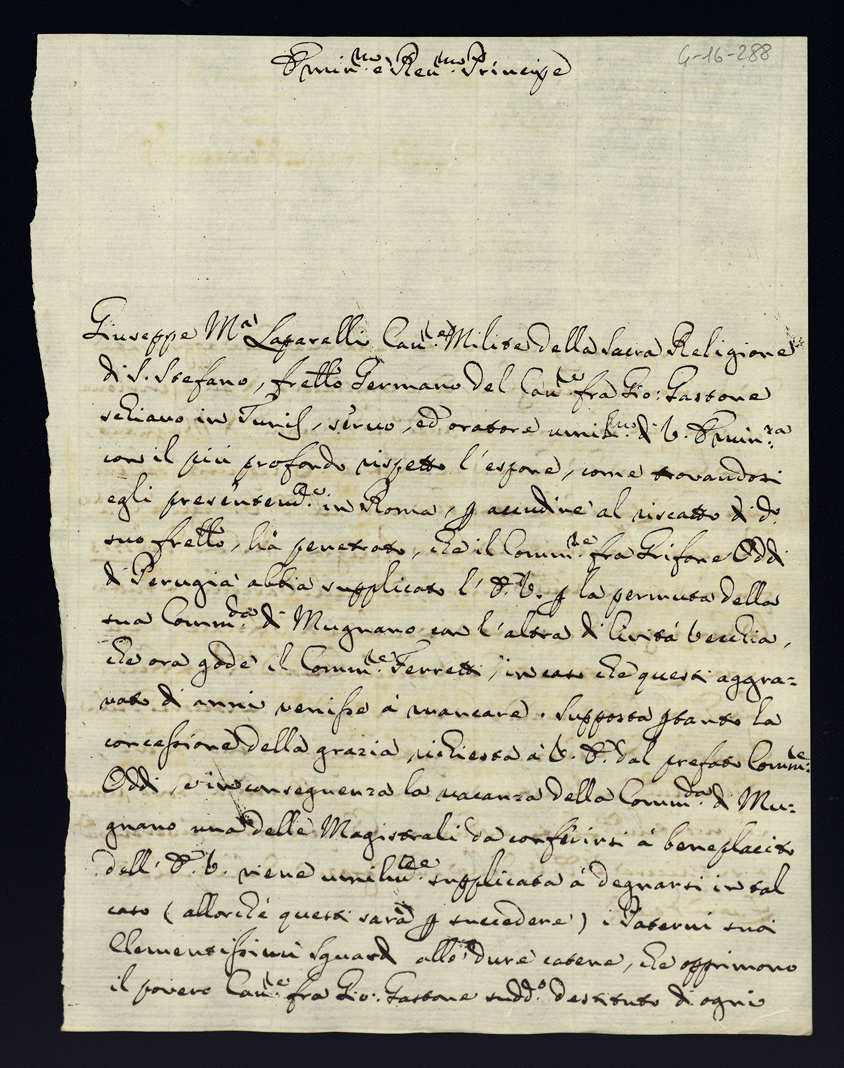 Emin.mo e Reu.mo Principe
G-16-288
Giuseppe M.a Laparelli Cau.re Milite della Sacra Religione
di S. Stefano, fretto Germano del Cau.re fra Gio: Gastone
schiauo in Tunisi, seruo, ed oratore umil.mo di V. Emin.za
con il più profondo rispetto l'espone, come trovandosi
egli presentem.te in Roma, p accudire al riscatto di d.o
suo fretto, hà penetrato, che il Comm.re fra Grifone Oddi
di Perugia abbia supplicato l'E.V. p la permuta della
sua Comm.da di Mugnano con l'altra di Ciuità Vecchia,
che ora gode il Comm.re Ferretti, in caso che questi aggra=
vato di anni venisse à mancare. Supposta ptanto la
concessione della grazia richiesta à V.E. dal prefato Comm.re
Oddi, e in conseguenza la vacanza della Comm.da di Mu=
gnano una delle Magistrali da conferirsi à beneplacito
dell'E.V. viene umilm.te supplicata à degnarsi in tal
caso (allorchè questi sarà p succedere) i Paterni suoi
Clementissimi sguardi alle dure catene, che opprimono
il povero Cau.re fra Gio: Gastone sudd.o destituto di ogni